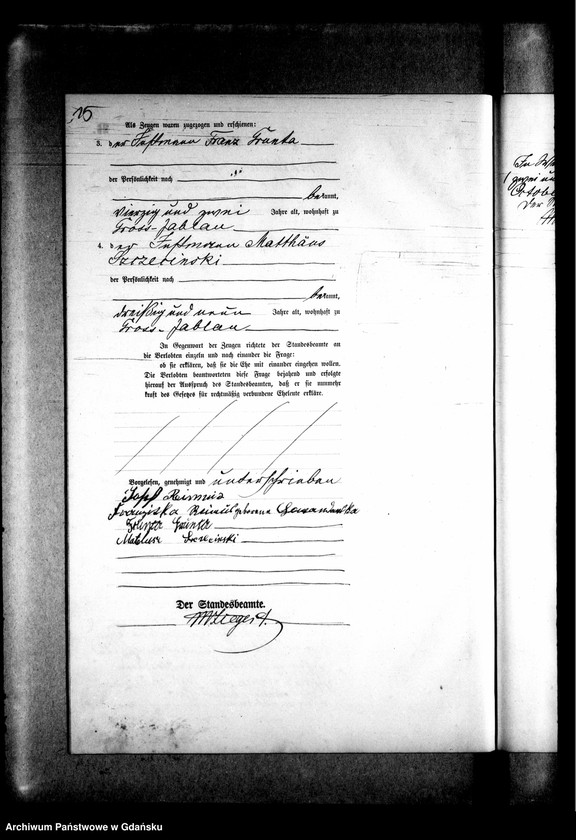 15
Als Zeugen waren zugezogen und erschienen:
3. der Instmann Franz
der Persönlichkeit nach
bekannt,
vierzig und zwei Jahre alt, wohnhaft zu
Gross-Jablau
4. der Instmann Matthäus
Szczepinski
der Persönlichkeit nach
bekannt,
dreißig und neun Jahre alt, wohnhaft zu
Gross-Jablau
In Gegenwart der Zeugen richtete der Standesbeamte an
die Verlobten einzeln und nach einander die Frage:
ob sie erklären, daß sie die Ehe mit einander eingehen wollen.
Die Verlobten beantworteten diese Frage bejahend und erfolgte
hierauf der Ausspruch des Standesbeamten, daß er sie nunmehr
kraft des Gesetzes für rechtmäßig verbundene Eheleute erkläre.
Vorgelesen, genehmigt und unterschrieben
Josef Reimus
Franziska geborene
Der Standesbeamte.
Archiwum Państwowe w Gdańsku